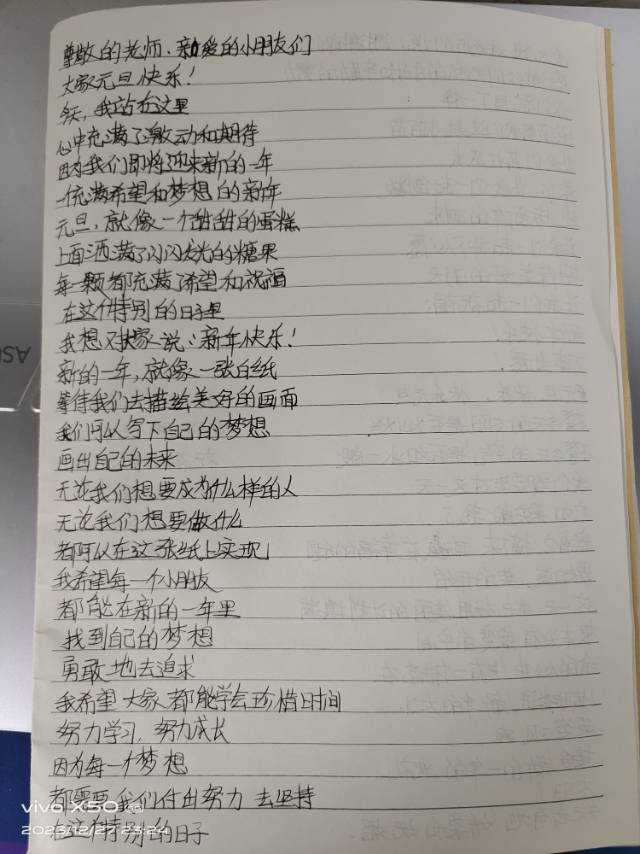 尊敬的老师、亲爱的小朋友们
大家元旦快乐！
今天，我站在这里
心中充满了激动和期待
因为我们即将迎来新的一年
一个充满希望和梦想的新年
元旦，就像一个甜甜的蛋糕
上面洒满了闪闪发光的糖果
每一颗都充满了希望和祝福
在这个特别的日子里
我想对大家说：新年快乐！
新的一年，就像一张白纸
等待我们去描绘美好的画面
我们可以写下自己的梦想
画出自己的未来
无论我们想要成为什么样的人
无论我们想要做什么
都可以在这张纸上实现
我希望每一个小朋友
都能在新的一年里
找到自己的梦想
勇敢地去追求
我希望大家都能学会珍惜时间
努力学习，努力成长
因为每一个梦想
都需要我们付出努力 去坚持
在这个特别的日子
vivo X50
2023/12/27 23:24
ASU